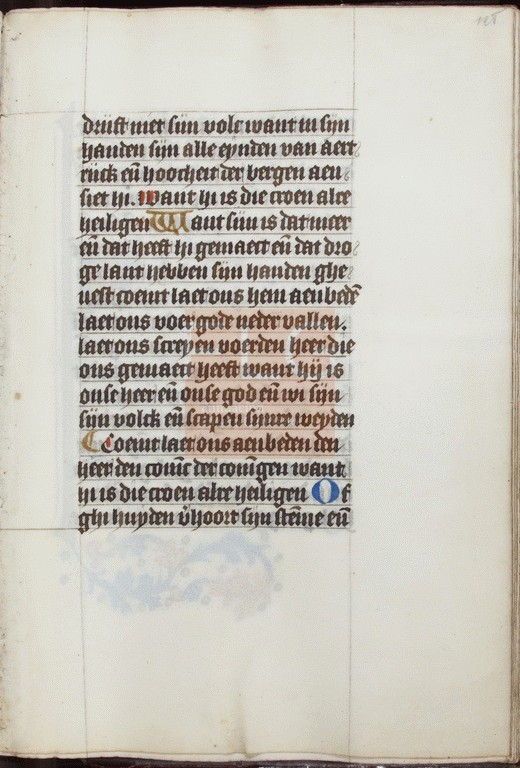 125
drijft met sijn volc want in sijn
handen sijn alle eynden van aert
rijck en̄ hoocheit der bergen aen
siet hi. want hi is die croen alre
heiligen Want sijn is dat meer
en̄ dat heeft hi gemaect en̄ dat dro
ge lant hebben sijn handen ghe
uest coemt laet ons hem aenbedē
laet ons voer gode neder vallen.
laet ons screyen voerden heer die
ons gemaect heeft want hij is
onse heer en̄ onse god en̄ wi sijn
sijn volck en̄ scapen sijnre weyden
Coemt laet ons aenbeden den
heer den conīc der conīgen want
hi is die croen alre heiligen Of
ghi huyden v̄hoort sijn stēme en̄